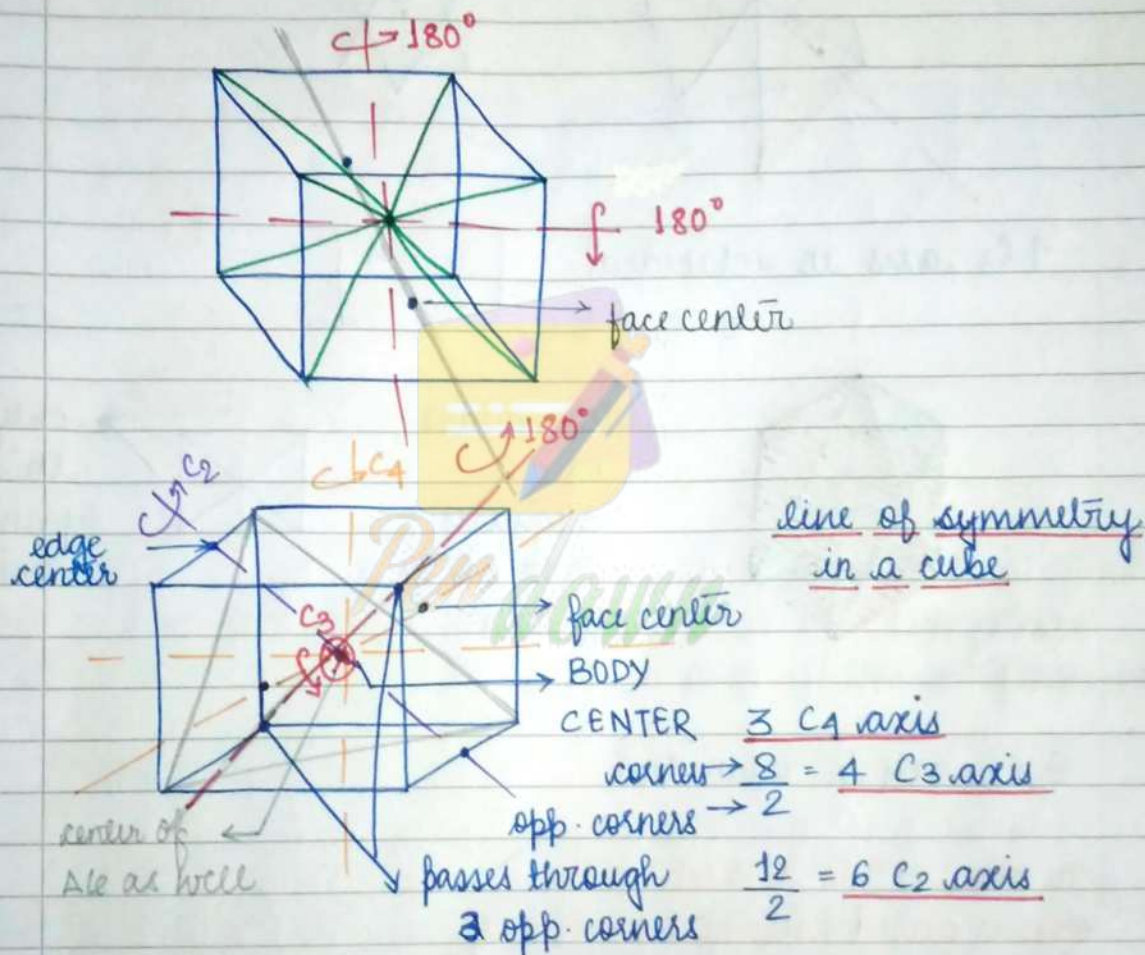 180°
180°
face center
180°
C4
C2
edge
center
line of symmetry
in a cube
C3
face center
BODY
CENTER
3 C4 axis
corners → 8/2 = 4 C3 axis
opp. corners →
center of
Δle as well
passes through
2 opp. corners
12/2 = 6 C2 axis
Pen
down